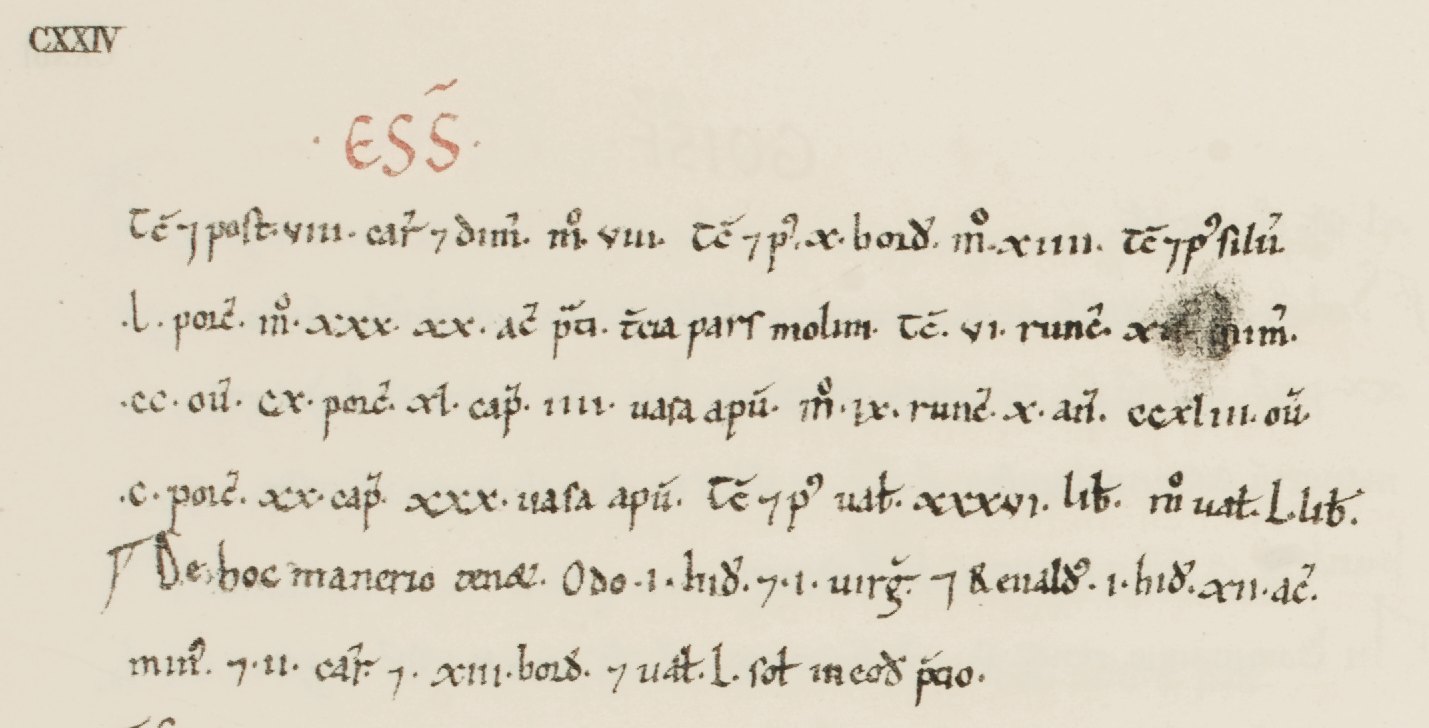 CXXIV
· ESS̃ ·
Tc̄ ⁊ post· viii· car̃ ⁊ dim̃· m̊· viii· Tc̄ ⁊ p᾽· x· bord̃· m̊· xiiii· Tc̄ ⁊ p᾽ silũ
·l· porc̃· m̊· xxx· xx· ac̃ p̃ti· t̃cia pars molini· Tc̄· vi· runc̃·
·cc· oũ· cx· porc̃· xl· cap̃· iiii· uasa apũ· m̊· ix· runc̃· x· añ· ccxliii· oũ·
·c· porc̃· xx· cap̃· xxx· uasa apũ· Tc̄ ⁊ p᾽ uał· xxxvi· lib̃· m̊ uał· l· lib̃·
De hoc manerio ten& · Odo· i· hid̃· ⁊· i· uirg̃· ⁊ Reuald᾽· i· hid̃· xii· ac̃·
min᾽· ⁊· ii· car̃· ⁊· xiii· bord̃· ⁊ uał· l· soł in eod̃ p̃cio·